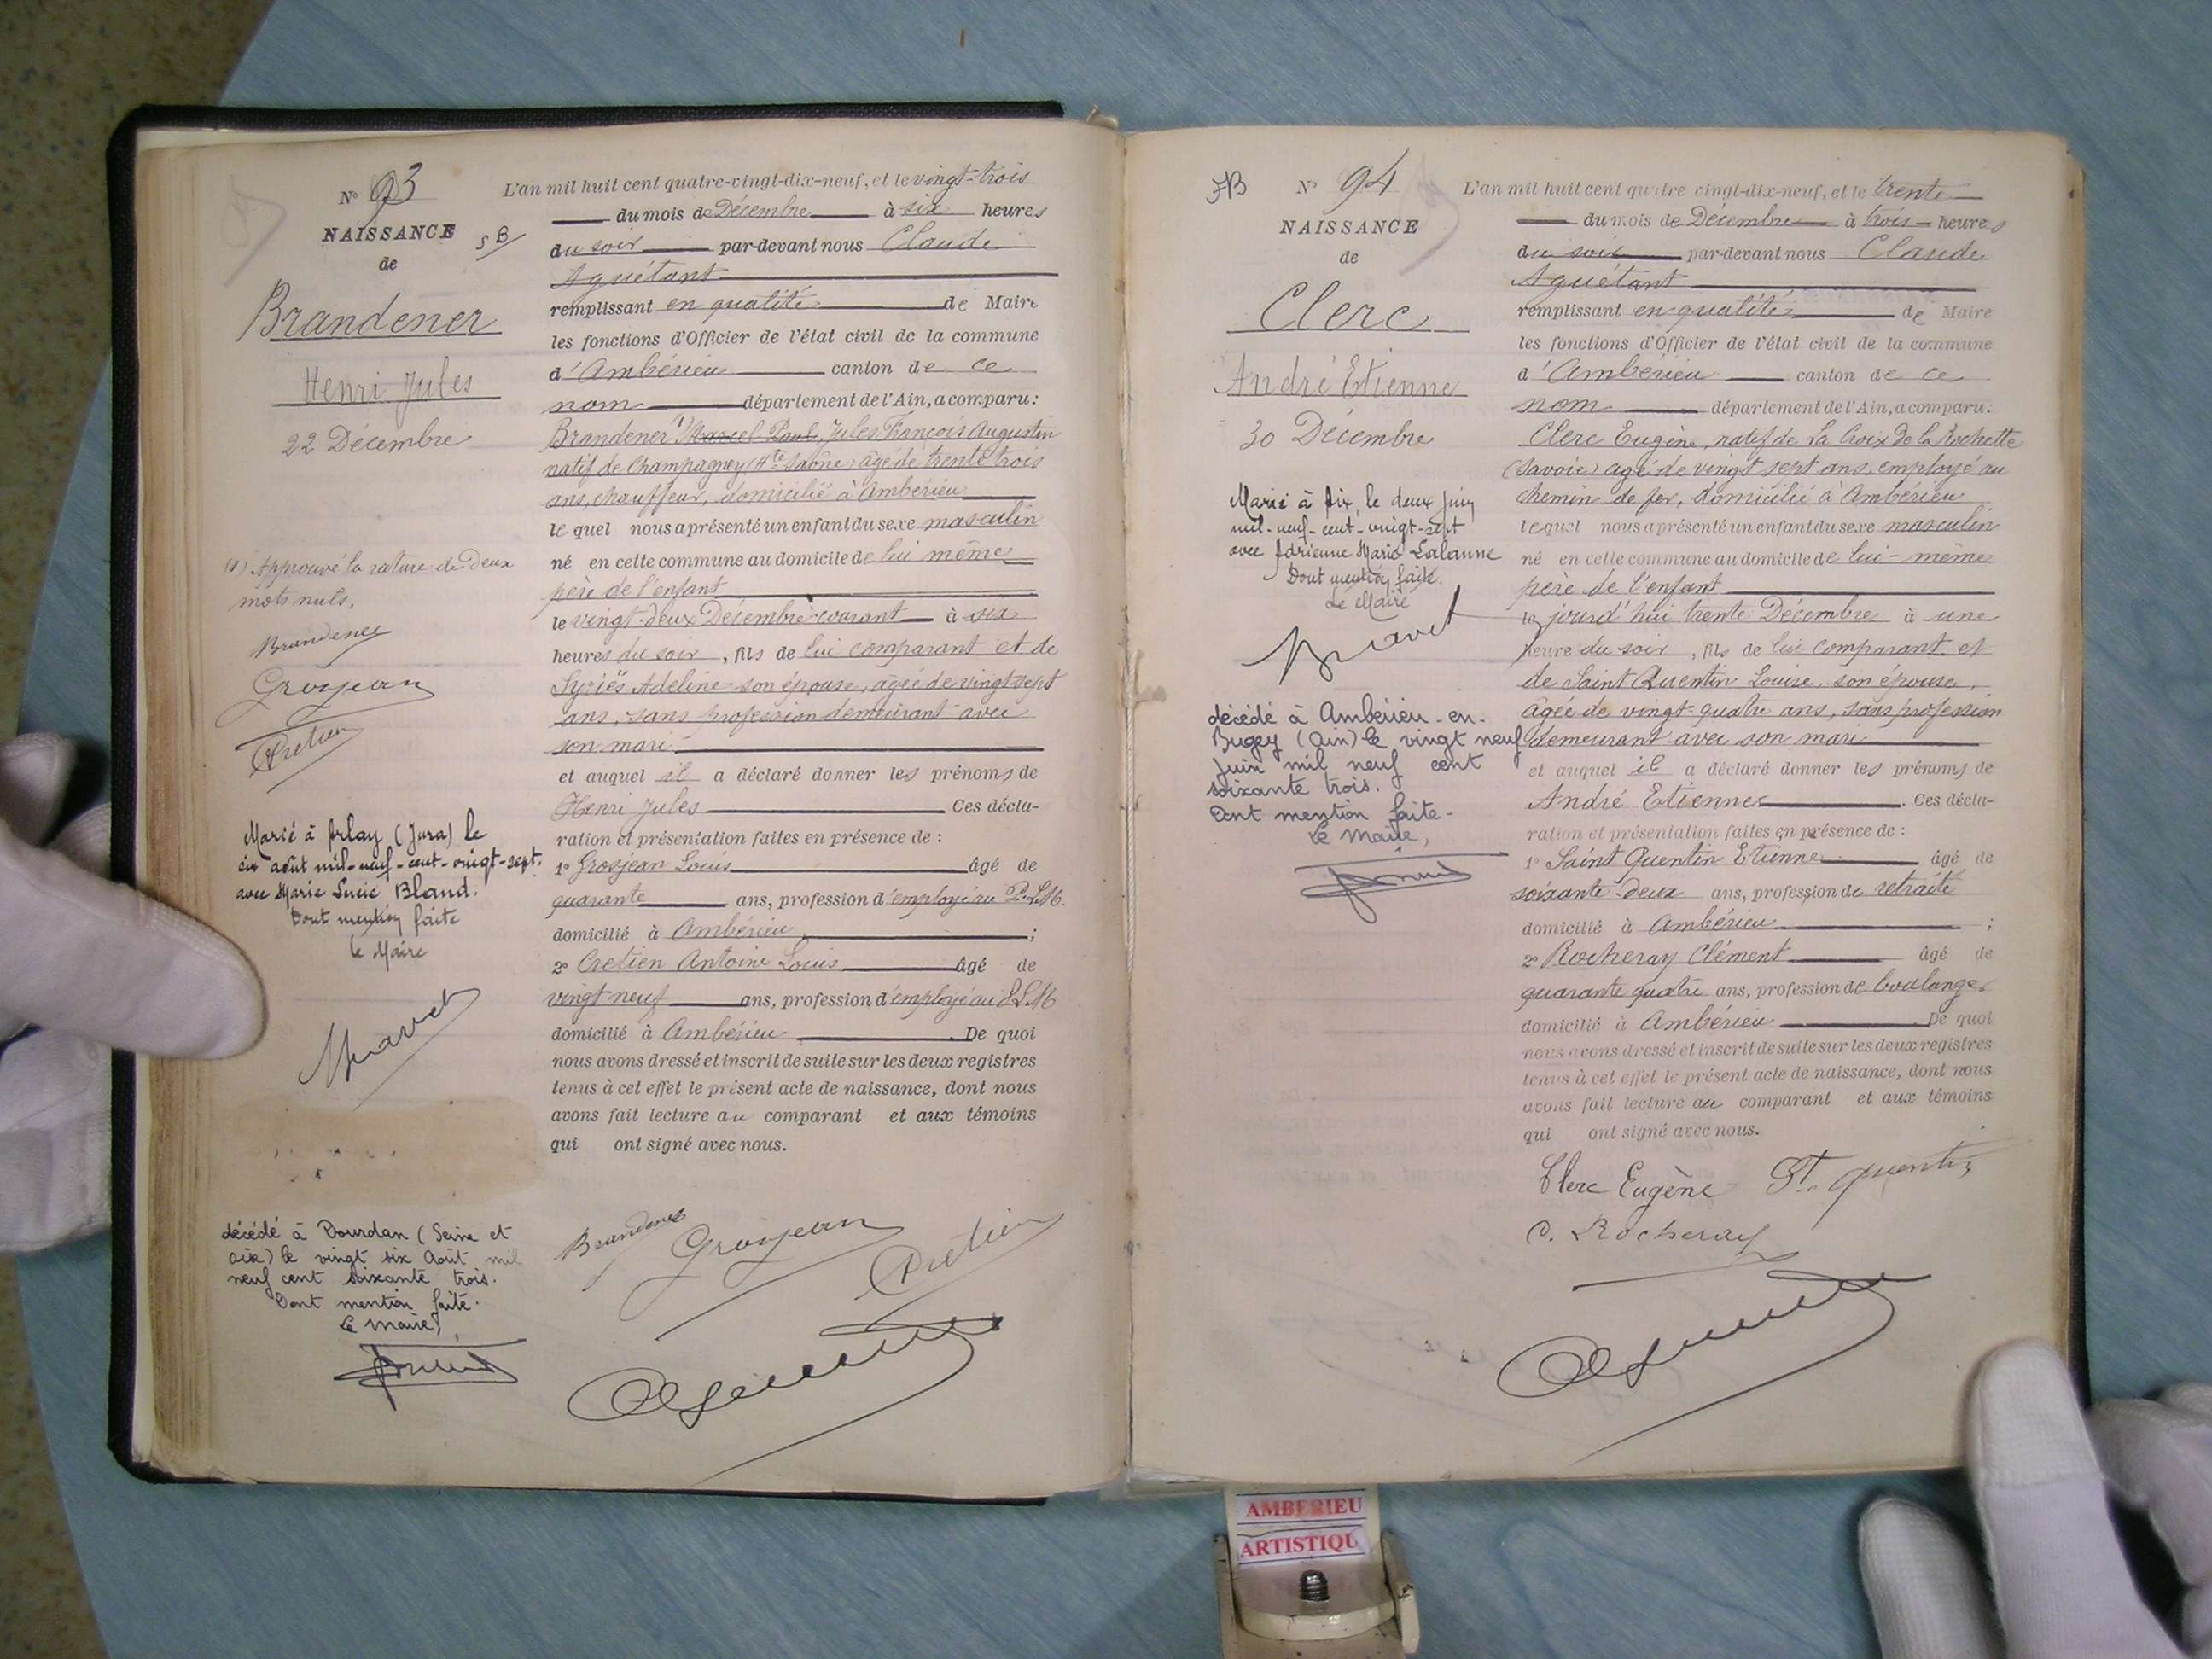 N° 93
NAISSANCE
5 B
de
Brandener
Henri Jules
22 Décembre
(1) Approuvé la rature de deux
mots nuls,
Brandener
Grosjean
Cretien
Marié à Arlay (Jura) le
six août mil-neuf-cent-vingt-sept
avec Marie Lucie Bland.
Dont mention faite
le Maire
décédé à Dourdan (Seine et
Oise) le vingt six Août mil
neuf cent soixante trois.
Dont mention faite.
Le Maire,
L'an mil huit cent quatre-vingt-dix-neuf, et le vingt-trois
du mois de Décembre à six heures
du soir par-devant nous Claude
Aguétant
remplissant en qualité de Maire
les fonctions d'Officier de l'état civil de la commune
d'Ambérieu canton de ce
nom département de l'Ain, a comparu :
Brandener (1) Marcel Paul, Jules François Augustin
natif de Champagney (Hte Saône) âgé de trente trois
ans, chauffeur, domicilié à Ambérieu
lequel nous a présenté un enfant du sexe masculin
né en cette commune au domicile de lui même
père de l'enfant
le vingt-deux Décembre courant à six
heures du soir, fils de lui comparant et de
Syriës Adeline son épouse, âgée de vingt sept
ans, sans profession demeurant avec
son mari
et auquel il a déclaré donner les prénoms de
Henri Jules Ces décla-
ration et présentation faites en présence de :
1° Grosjean Louis âgé de
quarante ans, profession d'employé au P.L.M.
domicilié à Ambérieu ;
2° Cretien Antoine Louis âgé de
vingt neuf ans, profession d'employé au P.L.M
domicilié à Ambérieu. De quoi
nous avons dressé et inscrit de suite sur les deux registres
tenus à cet effet le présent acte de naissance, dont nous
avons fait lecture au comparant et aux témoins
qui ont signé avec nous.
Brandener Grosjean Cretien
FB N° 94
NAISSANCE
de
Clerc
André Etienne
30 Décembre
Marié à Aix, le deux juin
mil-neuf-cent-vingt-sept
avec Adrienne Marie Lalanne
Dont mention faite.
Le Maire
décédé à Ambérieu-en-
Bugey (Ain) le vingt neuf
juin mil neuf cent
soixante trois.
Dont mention faite-
Le Maire,
L'an mil huit cent quatre vingt-dix-neuf, et le trente
du mois de Décembre à trois heures
du soir par-devant nous Claude
Aguétant
remplissant en qualité de Maire
les fonctions d'Officier de l'état civil de la commune
d'Ambérieu canton de ce
nom département de l'Ain, a comparu :
Clerc Eugène, natif de La Croix de la Rochette
(Savoie) âgé de vingt sept ans, employé au
chemin de fer, domicilié à Ambérieu
lequel nous a présenté un enfant du sexe masculin
né en cette commune au domicile de lui-même
père de l'enfant
le jourd'hui trente Décembre à une
heure du soir, fils de lui comparant et
de Saint Quentin Louise, son épouse,
âgée de vingt-quatre ans, sans profession
demeurant avec son mari
et auquel il a déclaré donner les prénoms de
André Etienne. Ces décla-
ration et présentation faites en présence de :
1° Saint Quentin Etienne âgé de
soixante-deux ans, profession de retraité
domicilié à Ambérieu ;
2° Rocheray Clément âgé de
quarante quatre ans, profession de boulanger
domicilié à Ambérieu. De quoi
nous avons dressé et inscrit de suite sur les deux registres
tenus à cet effet le présent acte de naissance, dont nous
avons fait lecture au comparant et aux témoins
qui ont signé avec nous.
Clerc Eugène St. Quentin
C. Rocheray
AMBERIEU
ARTISTIQU